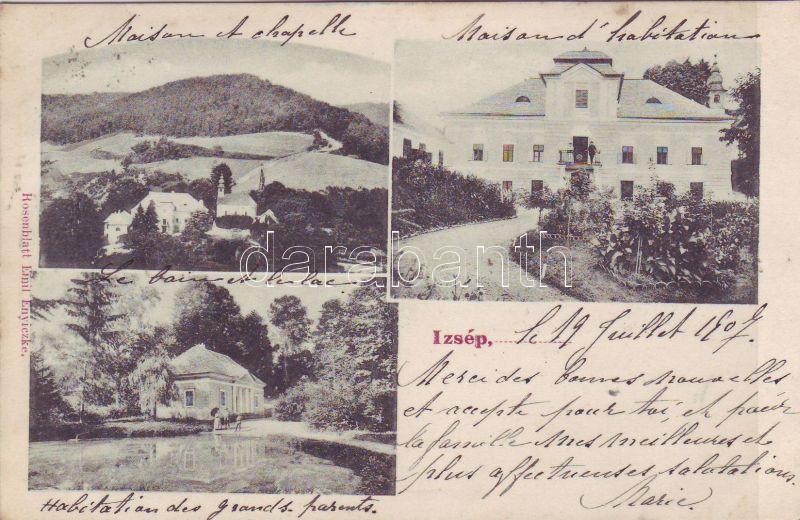 Maison et chapelle
Maison d'habitation
Rosenblatt Emil Enyiczke.
darabanth
Le bain et le lac
Izsép, le 19 Juillet 1907.
Merci des bonnes nouvelles
et accepte pour toi, et pour
la famille mes meilleures et
plus affectueuses salutations.
Marie.
Habitation des grands parents.